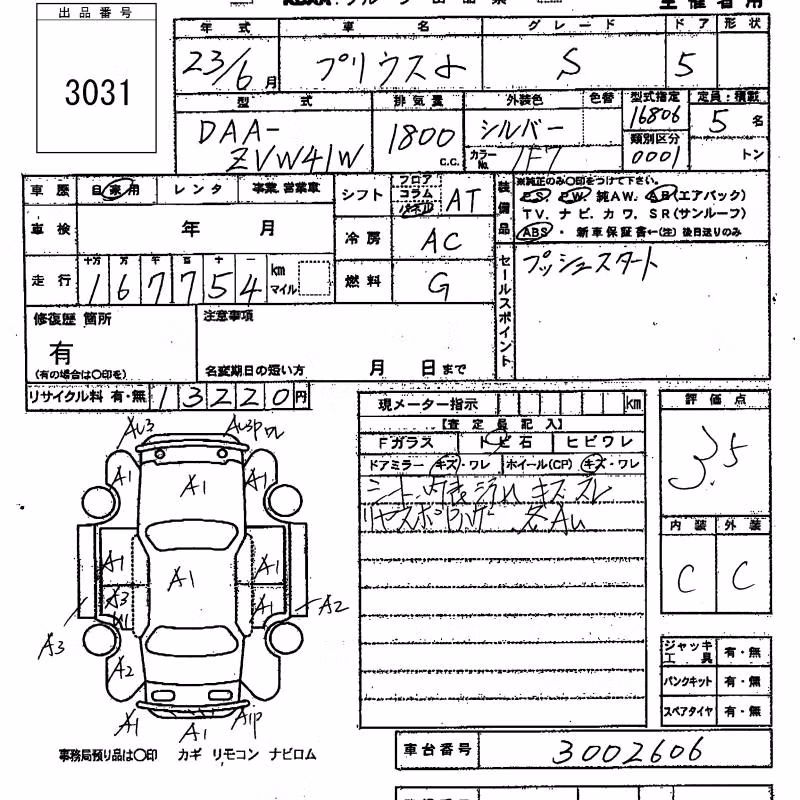 出品番号
3031
年式 車名 グレード ドア 形状
23/6月 プリウスα S 5
型式 排気量 外装色 色替 型式指定 定員：積載
DAA-ZVW41W 1800 c.c. シルバー 16806 5名
カラーNo. 1F7 類別区分 0001 トン
車歴 自家用 レンタ 事業 営業車 シフト フロア コラム パネル AT
装備品 ※純正のみ〇印をつけて下さい。
PS. PW. 純AW. AB(エアバック)
TV. ナビ. カワ. SR(サンルーフ)
ABS ・ 新車保証書←(注) 後日送りのみ
車検 年 月 冷房 AC
走行 十万 万 千 百 十 一
167754 km マイル 燃料 G
セールスポイント プッシュスタート
修復歴 箇所 注意事項
有
(有の場合は〇印を) 名変期日の短い方 月 日まで
リサイクル料 有・無 13220円
現メーター指示 km
【査定員記入】
Fガラス トビ石 ヒビワレ
ドアミラー キズ・ワレ ホイール(CP) キズ・ワレ
シート、内装ヨゴレ キズ スレ
評価点
3.5
内装 外装
C C
AU3 AU3P
A1 A1 A1
A1 A1 A1
A3 A1
A2
A3
A2
A1 A1 A1P
ジャッキ工具 有・無
パンクキット 有・無
スペアタイヤ 有・無
事務局預り品は〇印 カギ リモコン ナビロム
車台番号 3002606